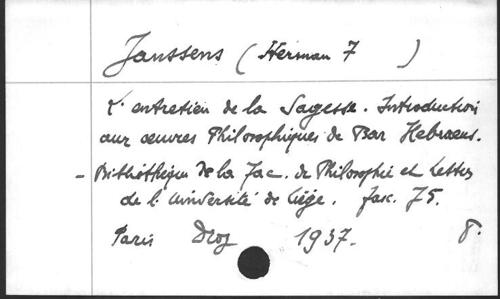 Janssens (Herman F )
L'entretien de la Sagesse. Introduction
aux œuvres Philosophiques de Bar Hebraeus.
- Bibliothèque de la Fac. de Philosophie et Lettres
de l'Université de Liège. fasc. 75.
Paris Droz 1937. 8.